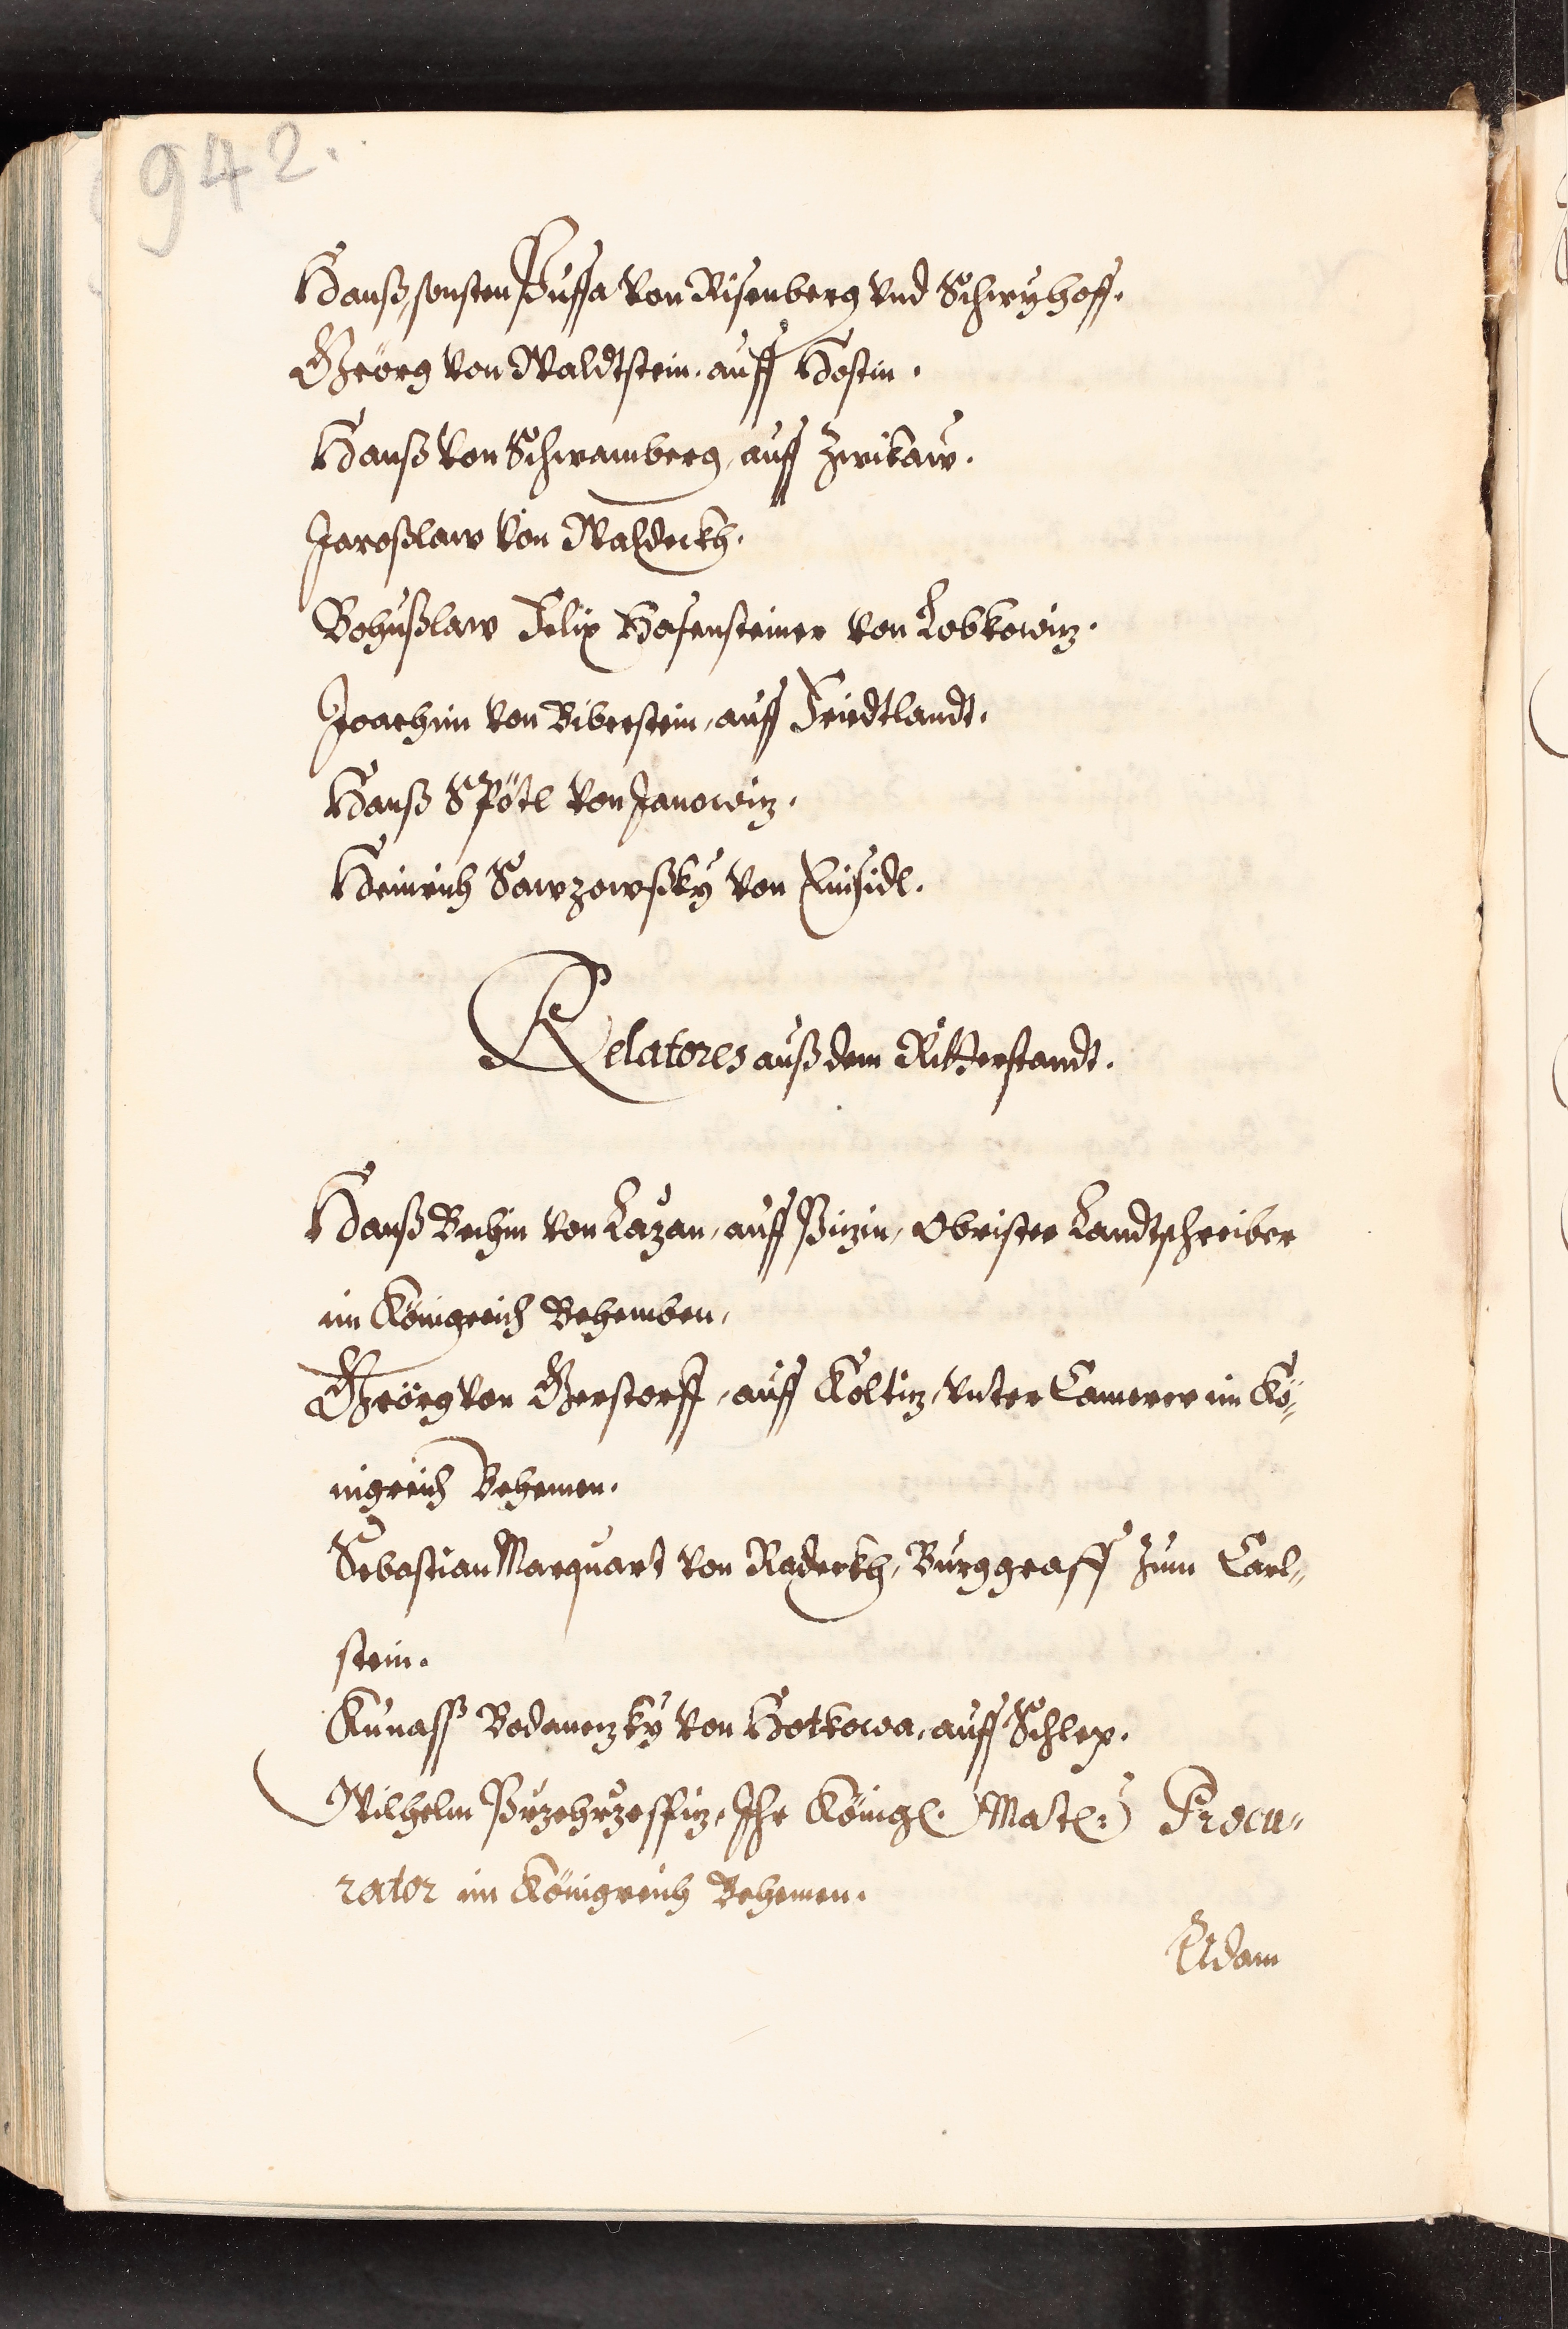 942.
Hanß, sonsten Puffa von Risenberg vnd Schwyhoff.
Geörg von Waldtstein, auff Hostin.
Hanß von Schwamberg, auff Zwikaw.
Jaroßlaw von Waldeckh.
Bohußlaw Felix Hasensteiner von Lobkowiz.
Joachim von Biberstein, auff Friedtlandt.
Hanß Spötl von Janowiz.
Heinrich Sawzowßky von Einsidl.
Relatores auß dem Ritterstandt.
Hanß Bechin von Lazan, auff Pizin, Obrister Landtschreiber
im Königreich Behemben,
Geörg von Gerstorff, auff Koltiz, vnter Camerer im Kö„
nigreich Behemen.
Sebastian Marquart von Radeckh, Burggraff zum Carl„
stein.
Kunass Bodanezky von Hotkowa, auff Schlep.
Wilhelm Przehrzeffiz, Ihr Königl. Matl: Procu„
rator im Königreich Behemen.
Adam